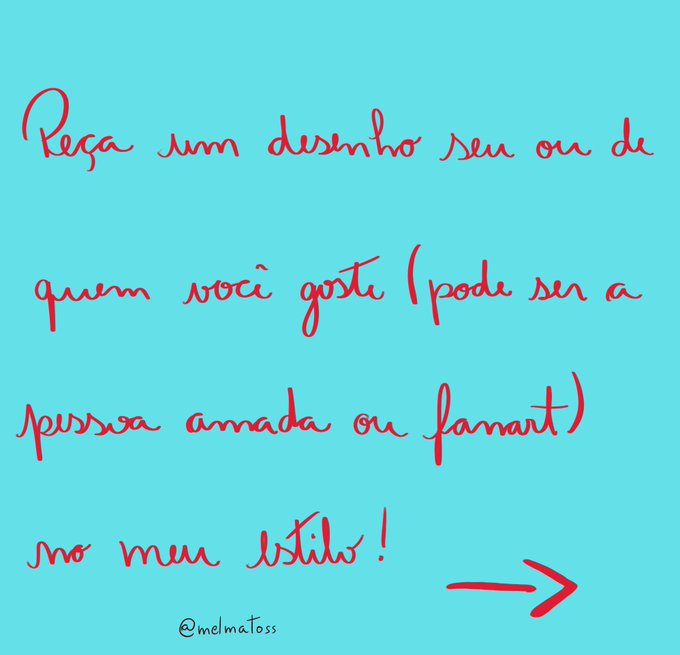 Peça um desenho seu ou de
quem você goste (pode ser a
pessoa amada ou fanart)
no meu estilo!
@melmatoss